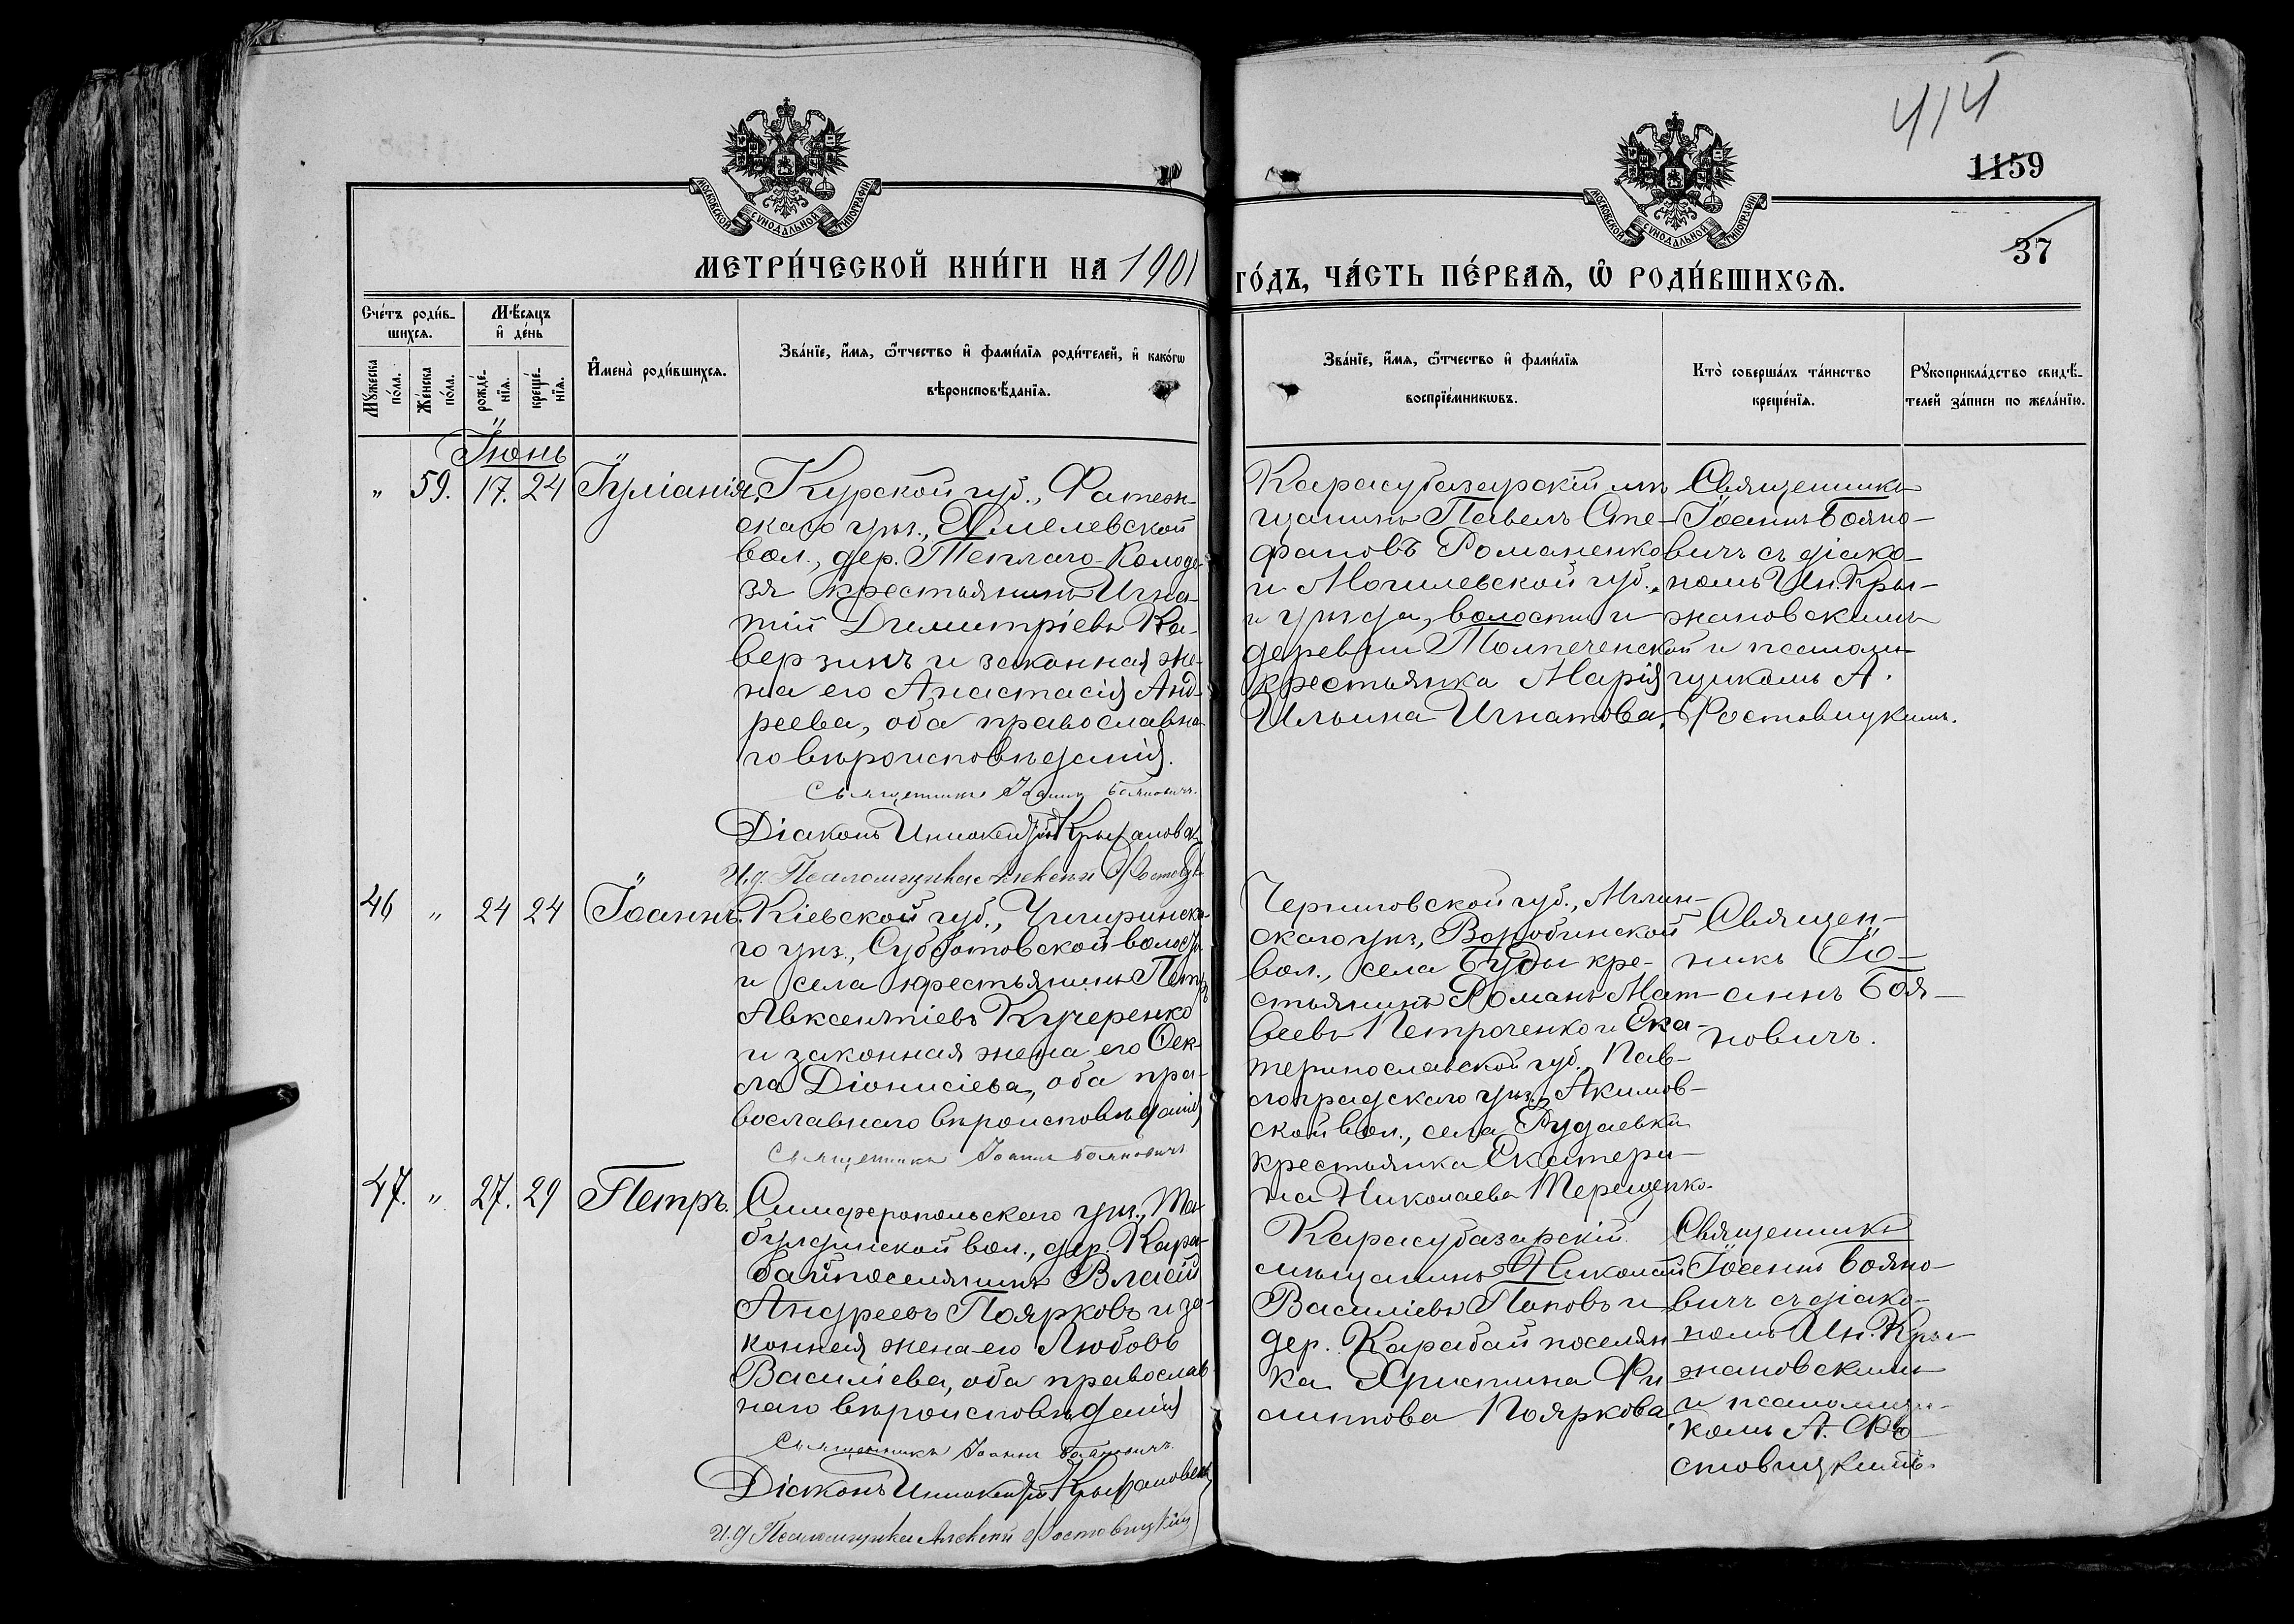 414
1159
37
МОСКОВСКОЙ СУНОДАЛЬНОЙ ТИПОГРАФІИ
МОСКОВСКОЙ СУНОДАЛЬНОЙ ТИПОГРАФІИ
МЕТРИ́ЧЕСКОЙ КНИ́ГИ НА 1901
ГО́ДЪ, ЧА́СТЬ ПЕ́РВАѦ, Ѽ РОДИ́ВШИХСѦ.
Сче́тъ роди́в-
шихсѧ.
Мꙋ́жеска
по́ла.
Же́нска
по́ла.
Мѣ́сѧцъ
и҆ де́нь
рожде́-
нїѧ.
креще́-
нїѧ.
И҆мена̀ роди́вшихсѧ.
Зва́нїе, и҆́мѧ, ѻ҆́тчество и҆ фами́лїѧ роди́телей, и҆ како́гѡ
вѣроисповѣ́данїѧ.
Зва́нїе, и҆́мѧ, ѻ҆́тчество и҆ фами́лїѧ
воспрїе́мникѡвъ.
Кто̀ соверша́лъ та́инство
креще́нїѧ.
Рꙋкоприкла́дство свидѣ́-
телей за́писи по жела́нїю.
Іюнь
" 59. 17. 24 Іуліанія.
Курской губ., Фатеж-
скаго уѣз., Хмелевской
вол., дер. Теплаго-Колоде-
зя крестьянинъ Игна-
тій Димитріевъ Ка-
верзинъ и законная же-
на его Анастасія Анд-
реева, оба православна-
го вѣроисповѣданія.
Священникъ Іоаннъ Бояновичъ.
Діаконъ Иннокентій Крыжановскій
И.д. Псаломщика Алексѣй Ростовцкій
Карасубазарскій мѣ-
щанинъ Павелъ Сте-
фановъ Романенко
и Могилевской губ.,
и уѣзда, волости и
деревни Толпеченской
крестьянка Марія
Ильина Игнатова.
Священникъ
Іоаннъ Бояно-
вичъ съ діако-
номъ Ин. Кры-
жановскимъ
и псалом-
щикомъ А.
Ростовицкимъ.
46 " 24 24 Іоаннъ.
Кіевской губ., Чигиринска-
го уѣз., Субботовской волости
и села крестьянинъ Петръ
Авксентіевъ Кучеренко
и законная жена его Ѳек-
ла Діонисіева, оба пра-
вославнаго вѣроисповѣданія
Священникъ Іоаннъ Бояновичъ
Черниговской губ., Мглин-
скаго уѣз,
вол., села Буды кре-
стьянинъ Романъ Мат-
веевъ Петроченко и Ека-
теринославской губ. Пав-
лоградскаго уѣз., Акимов-
ской вол., села
крестьянка Екатери-
на Николаева Терещенко.
Священ-
никъ Іо-
аннъ Боя-
новичъ.
47. " 27. 29 Петръ.
Симферопольскаго уѣз., Та-
булдинской вол., дер. Кара-
бай поселянинъ Власій
Андреевъ Поярковъ и за-
конная жена его Любовь
Василіева, оба православ
наго вѣроисповѣданія
Священникъ Іоаннъ Бояновичъ.
Діаконъ Иннокентій Крыжановскій
И.д Псаломщика Алексѣй Ростовицкій
Карасубазарскій
мѣщанинъ Николай
Василіевъ Поповъ и
дер. Карабай поселян
ка Христина Фи
липпова Пояркова
Священникъ
Іоаннъ Бояно-
вичъ съ діако-
номъ Ин. Кры-
жановскимъ
и псаломщи-
комъ А. Ро-
стовицкимъ.